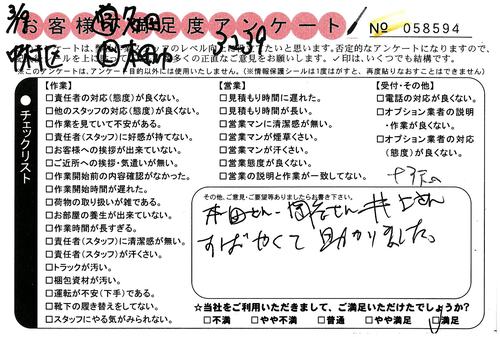 3/9
お客様満足度アンケート
3239
№ 058594
中村区
アンケートは、
レベル向上
に努めてたいと思います。否定的なアンケートになりますので、
多くの直正なご意見をお願いします。✓印は、いくつでも結構です。
※このアンケートは、アンケート目的以外には使用いたしません。（※情報保護シールは1度がすと、再度貼りなおすことはできません）
●チェックリスト
【作業】
□責任者の対応（態度）が良くない。
□他のスタッフの対応（態度）が良くない。
□作業を見ていて不安がある。
□責任者（スタッフ）に好感が持てない。
□お客様への挨拶が出来ていない。
□ご近所への挨拶・気遣いが無い。
□作業開始前の内容確認がなかった。
□作業開始時間が遅れた。
□荷物の取り扱いが雑である。
□お部屋の養生が出来ていない。
□作業時間が長すぎる。
□責任者（スタッフ）に清潔感が無い。
□責任者（スタッフ）が汗くさい。
□トラックが汚い。
□梱包資材が汚い。
□運転が不安（下手）である。
□靴下の履き替えをしてない。
□スタッフにやる気がみられない。
【営業】
□見積もり時間に遅れた。
□見積もり時間が長い。
□営業マンに清潔感が無い。
□営業マンが煙草くさい。
□営業マンが汗くさい。
□営業態度が良くない。
□営業の説明と作業が一致してない。
【受付・その他】
□電話の対応が良くない。
□オプション業者の説明
・作業が良くない。
□オプション業者の対応
（態度）が良くない。
その他、ご意見・ご要望等ありましたらお書き下さい。
本田さん、岡谷さん、井上さん
すばやくて助かりました。
☆当社をご利用いただきまして、ご満足いただけたでしょうか？
□不満 □やや不満 □普通 □やや満足 □満足